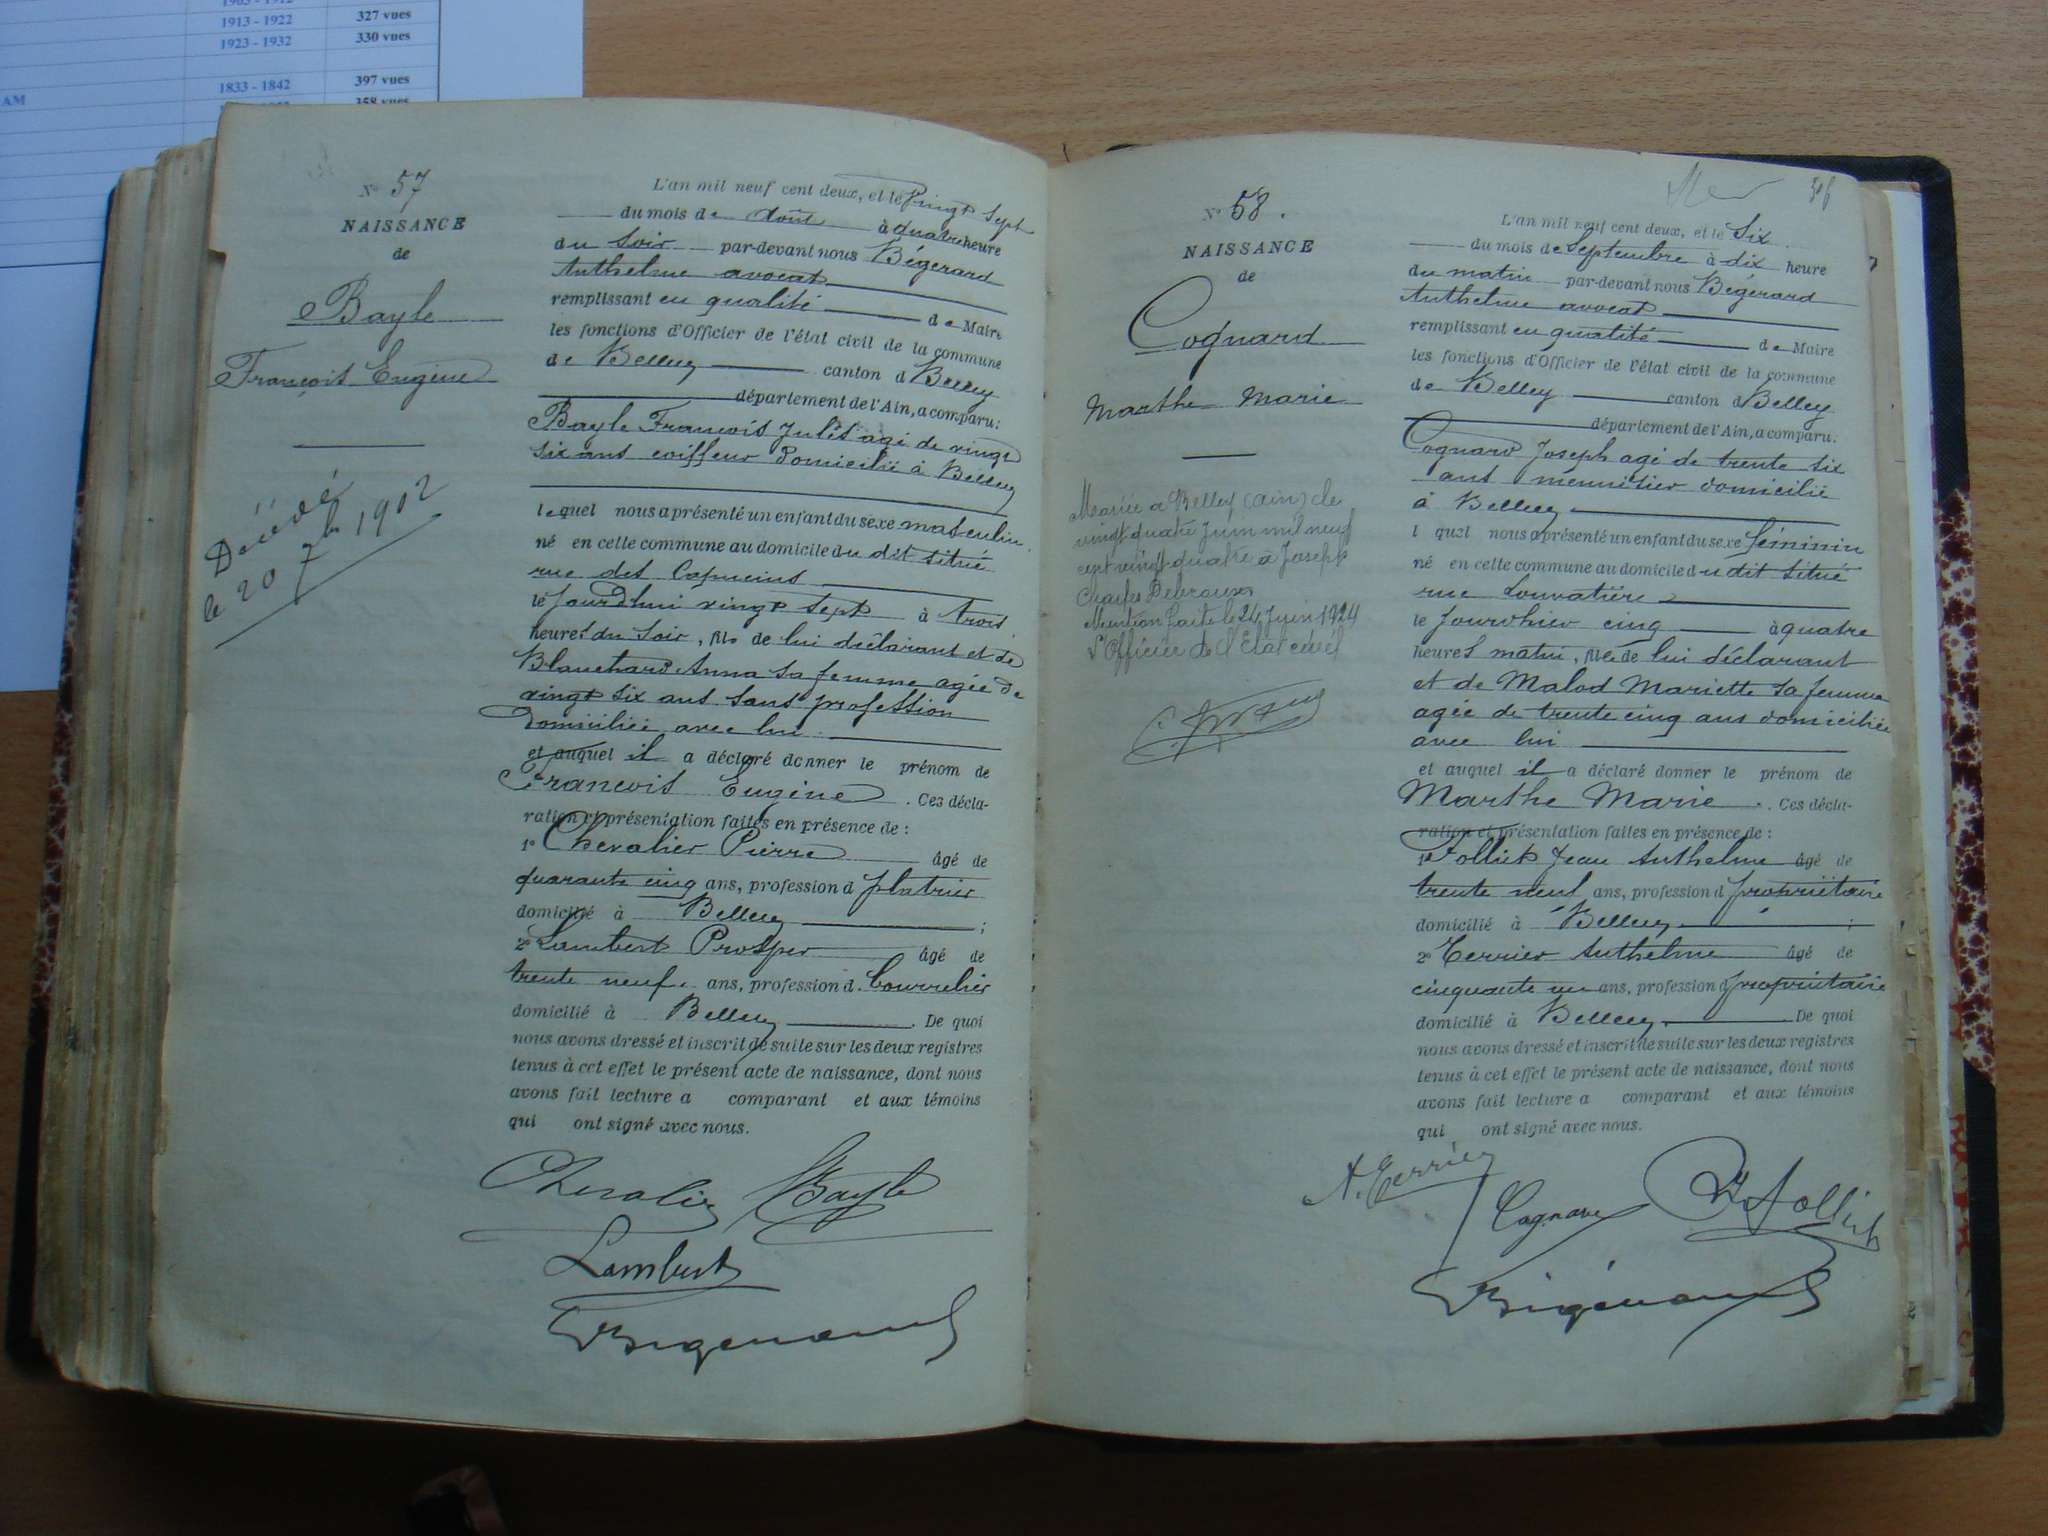 1903 - 1912
1913 - 1922 327 vues
1923 - 1932 330 vues
1833 - 1842 397 vues
AM
358 vues
N° 57
NAISSANCE
de
Bayle
François Eugène
Décédé
le 20 7bre 1902
L'an mil neuf cent deux, et le vingt sept
du mois de Août à quatre heure
du soir par-devant nous Bégerard
Anthelme avocat
remplissant en qualité de Maire
les fonctions d'Officier de l'état civil de la commune
de Belley canton d Belley
département de l'Ain, a comparu:
Bayle François Jules agé de vingt
six ans coiffeur domicilié à Belley
lequel nous a présenté un enfant du sexe masculin
né en cette commune au domicile du dit situé
rue des Capucins
le jourd'hui vingt sept à trois
heures du soir, fils de lui déclarant et de
Blanchard Anna sa femme agée de
vingt six ans sans profession
domiciliée avec lui
et auquel il a déclaré donner le prénom de
François Eugène. Ces décla-
ration et présentation faites en présence de:
1° Chevalier Pierre âgé de
quarante cinq ans, profession d platrier
domicilié à Belley ;
2° Lambert Prosper âgé de
trente neuf ans, profession d. bourrelier
domicilié à Belley. De quoi
nous avons dressé et inscrit de suite sur les deux registres
tenus à cet effet le présent acte de naissance, dont nous
avons fait lecture a comparant et aux témoins
qui ont signé avec nous.
Chevalier Bayle
Lambert
Bégerard
306
N° 58.
NAISSANCE
de
Cognard
Marthe Marie
Mariée a Belley (ain) le
vingt quatre Juin mil neuf
cent vingt quatre à Joseph
Charles
Mention faite le 24 Juin 1924
L'Officier de l'Etat civil
L'an mil neuf cent deux, et le Six
du mois de Septembre à dix heure
du matin par-devant nous Bégerard
Anthelme avocat
remplissant en qualité de Maire
les fonctions d'Officier de l'état civil de la commune
de Belley canton d Belley
département de l'Ain, a comparu:
Cognard Joseph agé de trente six
ans menuisier domicilié
à Belley
l quel nous a présenté un enfant du sexe féminin
né en cette commune au domicile du dit situé
rue
le jour d'hier cinq à quatre
heures matin, fille de lui déclarant
et de Malod Mariette sa femme
agée de trente cinq ans domiciliée
avec lui
et auquel il a déclaré donner le prénom de
Marthe Marie. Ces décla-
ration et présentation faites en présence de:
1° Folliet Jean Anthelme âgé de
trente neuf ans, profession d propriétaire
domicilié à Belley ;
2° Terrier Anthelme âgé de
cinquante un ans, profession d propriétaire
domicilié à Belley. De quoi
nous avons dressé et inscrit de suite sur les deux registres
tenus à cet effet le présent acte de naissance, dont nous
avons fait lecture a comparant et aux témoins
qui ont signé avec nous.
A. Terrier Cognard Folliet
Bégerard